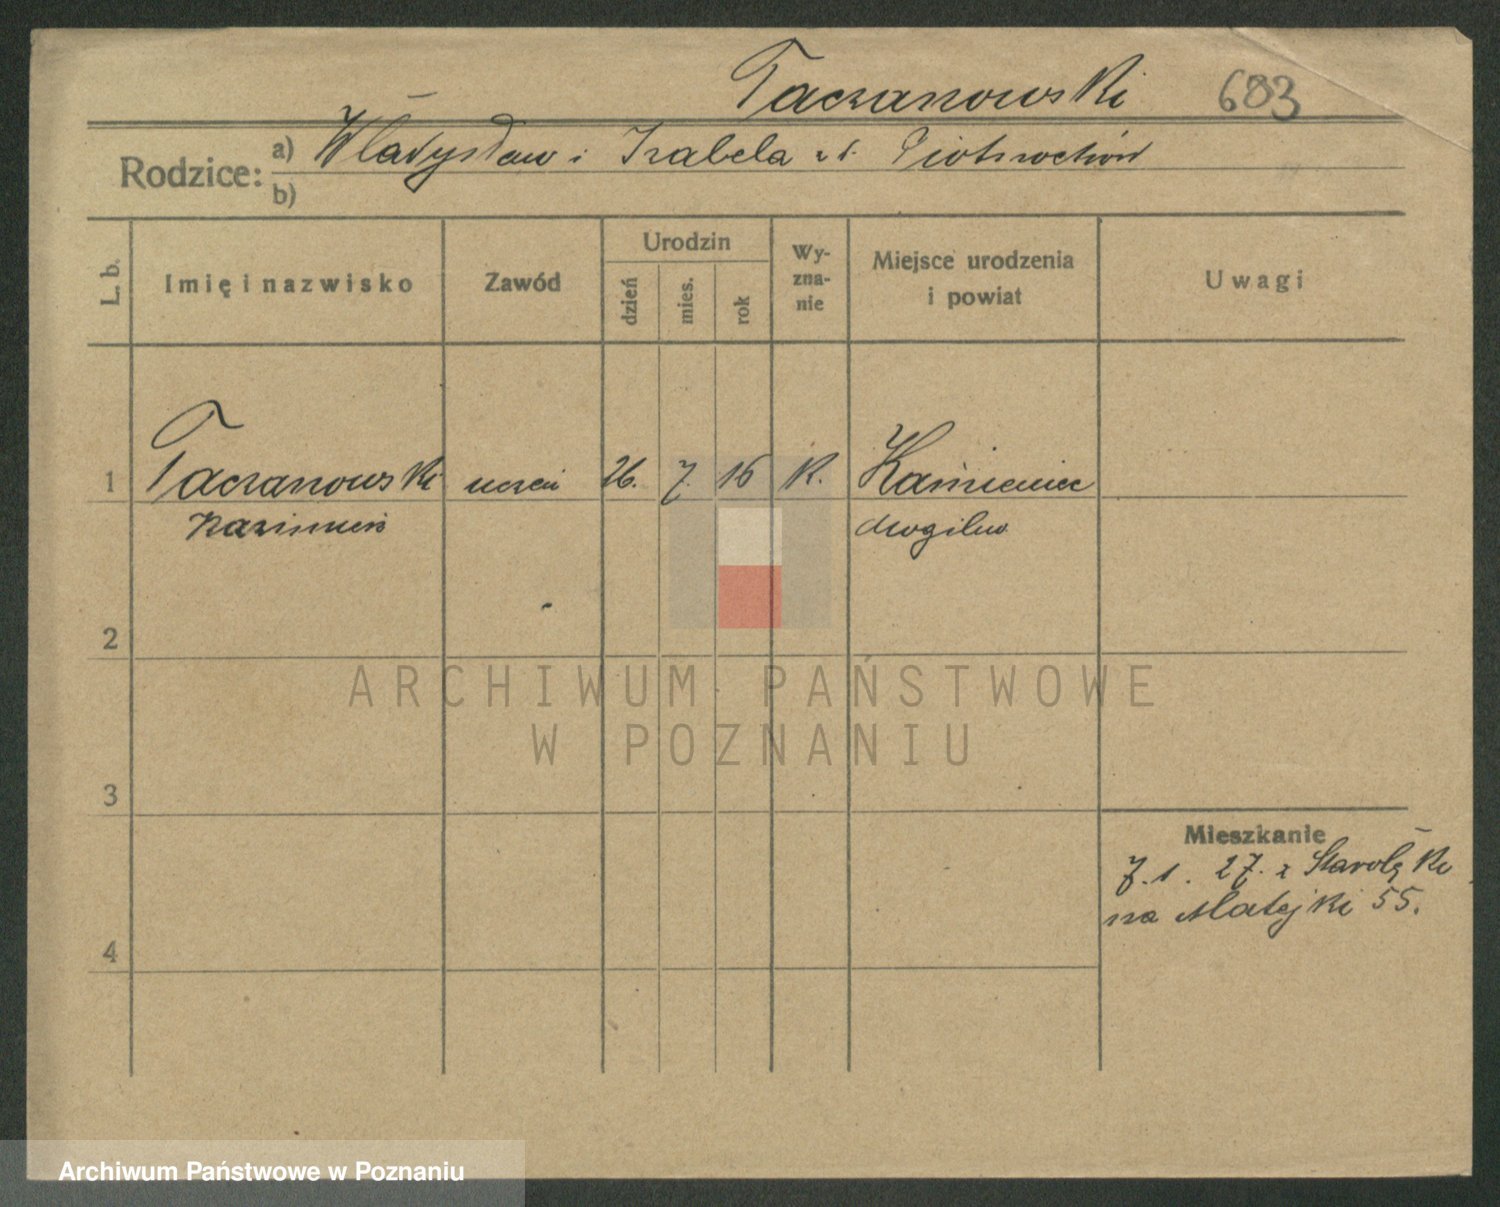 Taczanowski 683
Rodzice:
a) Władysław i Izabela z d.
b)
L. b.
Imię i nazwisko
Zawód
Urodzin
dzień
mies.
rok
Wy-
zna-
nie
Miejsce urodzenia
i powiat
Uwagi
1 Taczanowski uczeń 26. 7. 16 R. Kamieniec
Kazimierz
2
3
4
Mieszkanie
7. 1. 27. z Starołęki
na Matejki 55.
ARCHIWUM PAŃSTWOWE
W POZNANIU
Archiwum Państwowe w Poznaniu